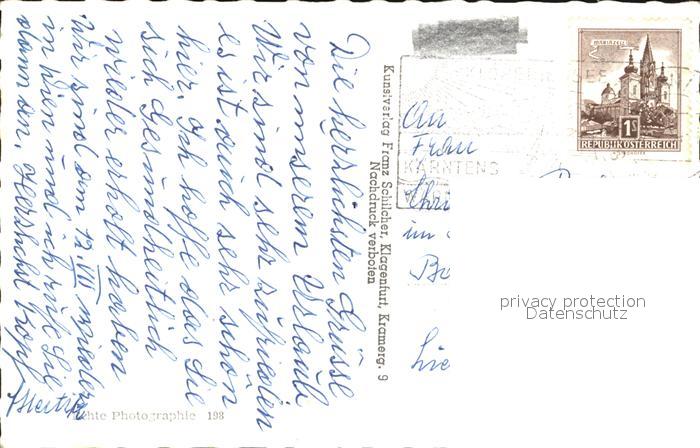 Die herrlichsten Grüsse
von unserem Urlaub
Wir sind sehr zufrieden
es ist auch sehr schön
hier. Ich hoffe das Sie
sich gesundheitlich
wieder erholt haben
Wir sind am 12. VIII wieder
in Wien und ich rufe Sie
dann an. Herzlichst
Echte Photographie 198
Kunstverlag Franz Schilcher, Klagenfurt, Kramerg. 9
Nachdruck verboten
MARIAZELL
1S
REPUBLIK ÖSTERREICH
KÄRNTENS
An
Frau
im
privacy protection
Datenschutz